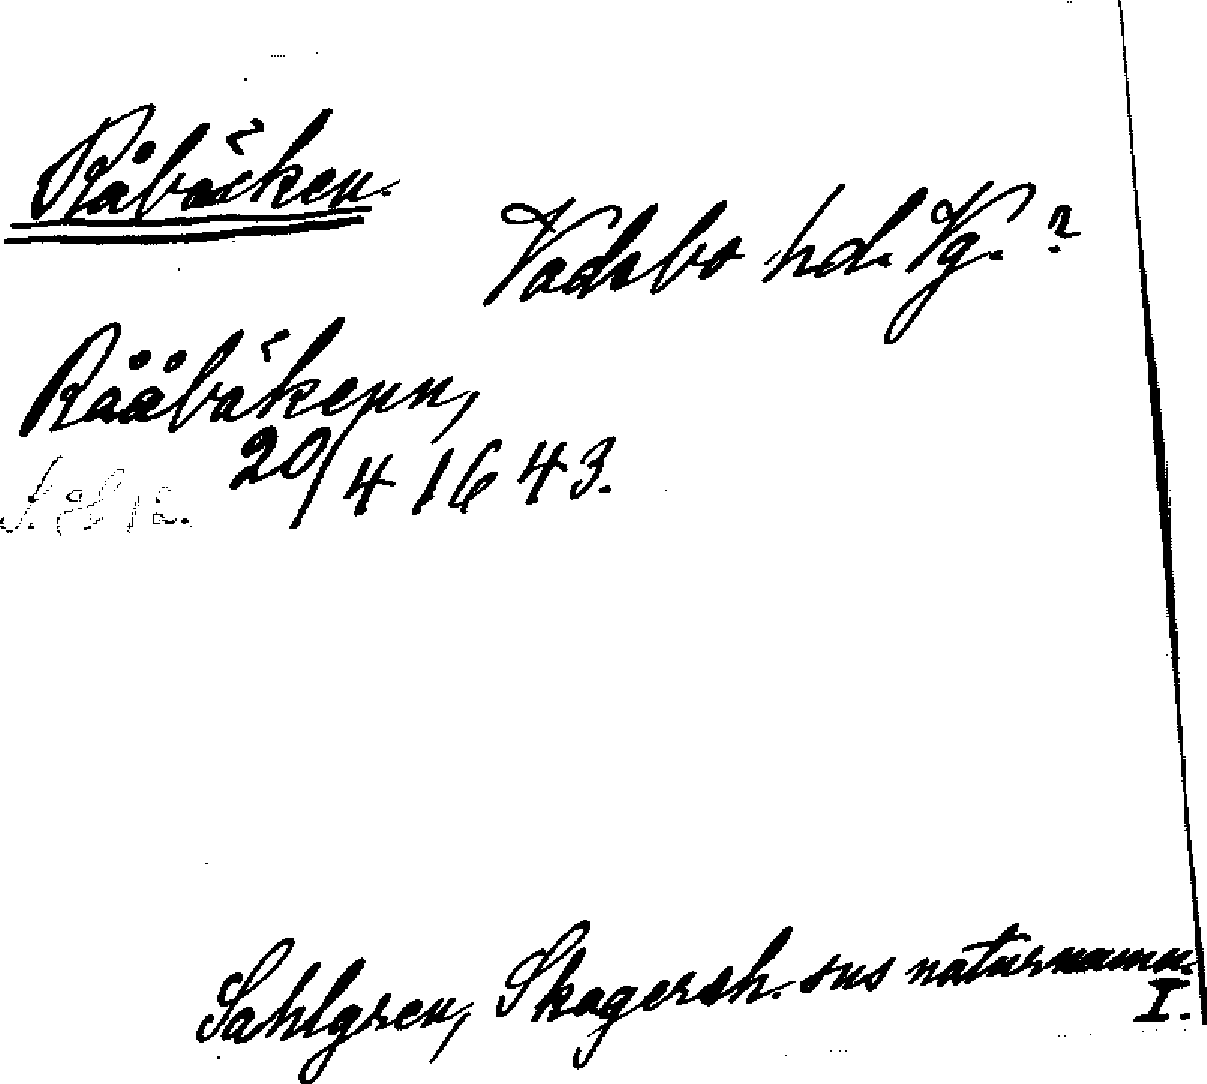 Råbäcken.
Vadsbo hd. Vg. ?
Rååbäkenn,
20/4 1643.
Sahlgren, Skagersh. sns naturnamn.
I.